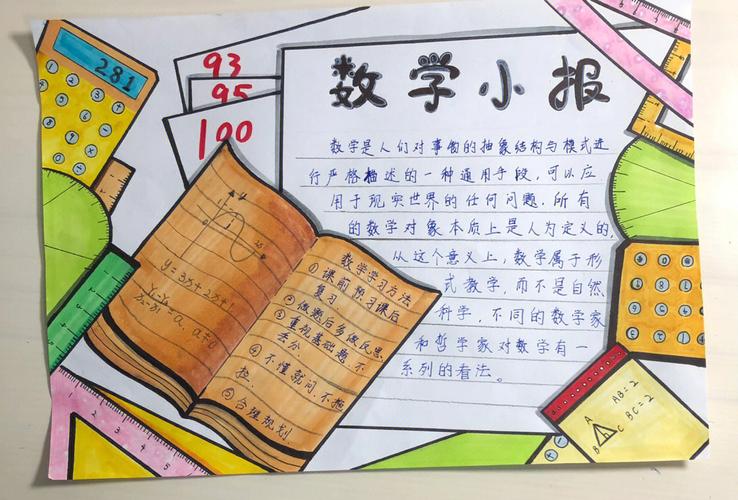 281
93
95
100
数学小报
数学是人们对事物的抽象结构与模式进
行严格描述的一种通用手段,可以应
用于现实世界的任何问题.所有
的数学对象本质上是人为定义的,
从这个意义上,数学属于形
式教学,而不是自然
科学,不同的数学家
和哲学家对数学有一
系列的看法。
数学学习方法
①课前预习课后
复习.
②做题后多做反思
③重视基础题,不
丢分.
④不懂就问,不拖
拉.
⑤合理规划.
AB=2
BC=2
A
B
C
1 2 3 4 5